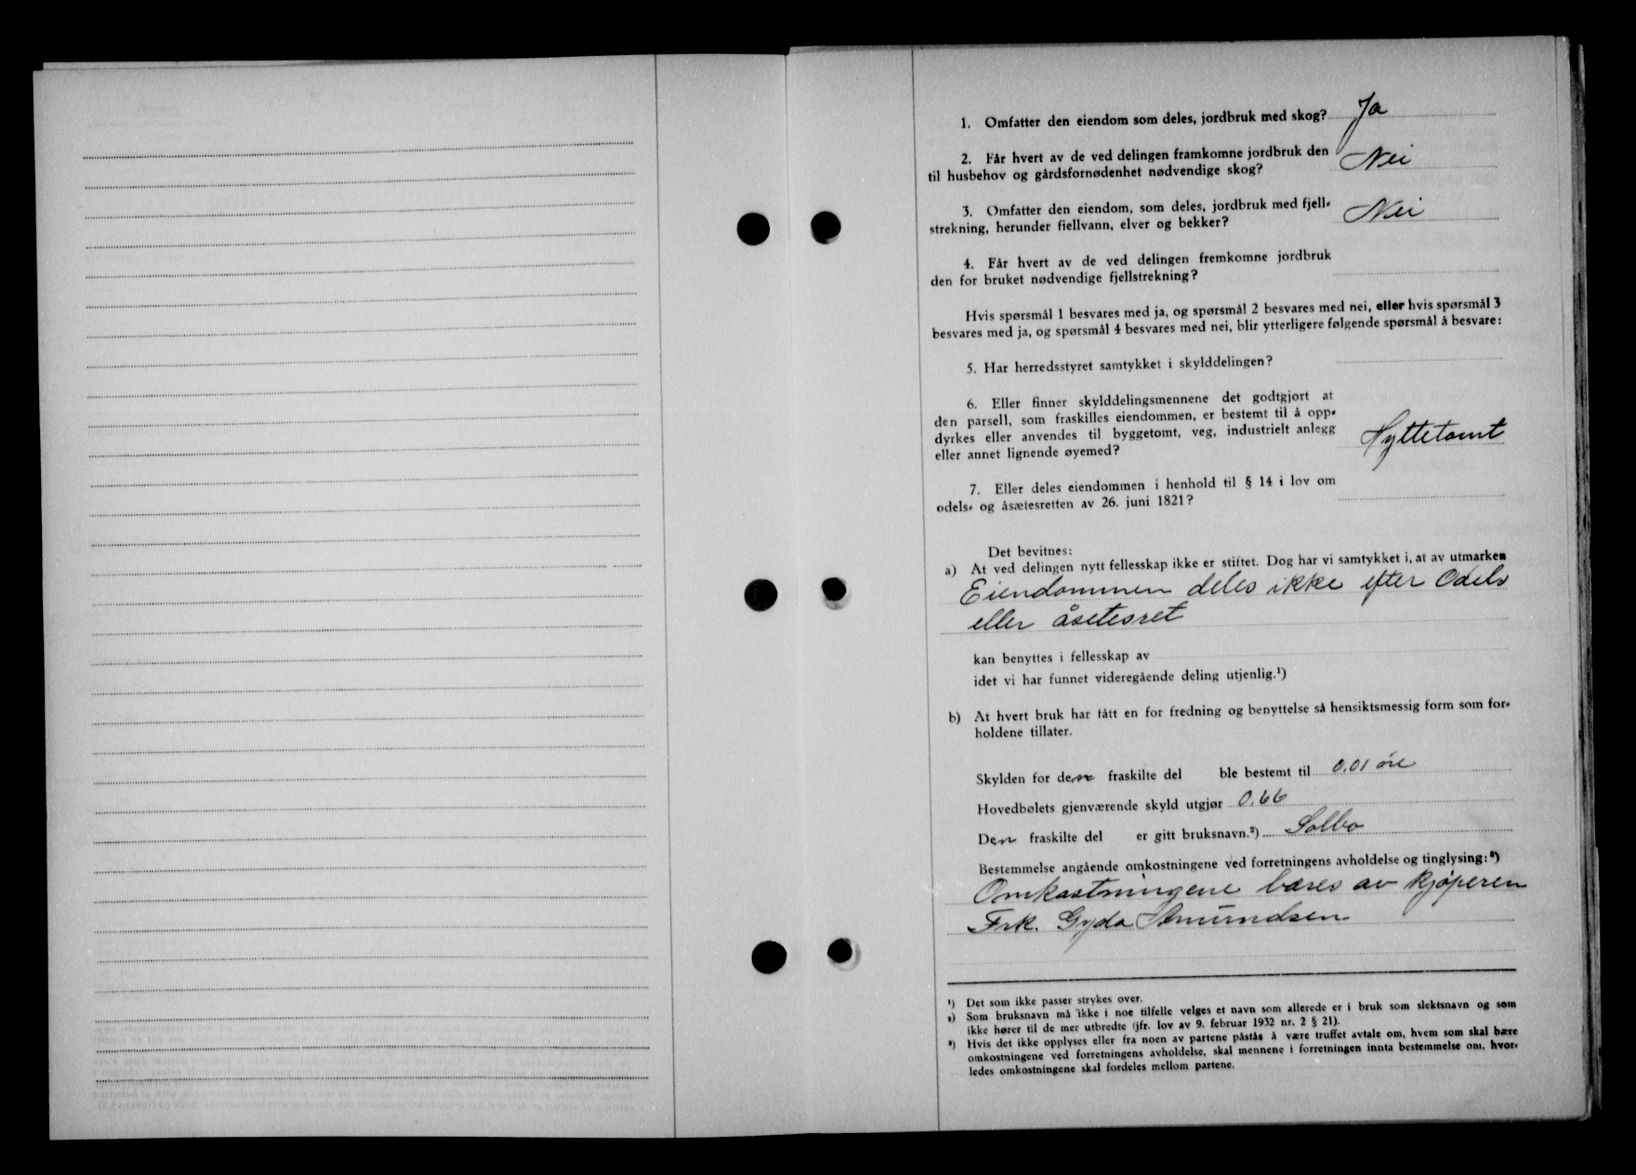 1. Omfatter den eiendom som deles, jordbruk med skog? Ja
2. Får hvert av de ved delingen framkomne jordbruk den
til husbehov og gårdsfornødenhet nødvendige skog? Nei
3. Omfatter den eiendom, som deles, jordbruk med fjell-
strekning, herunder fiellvann, elver og bekker? Nei
4. Får hvert av de ved delingen fremkomne jordbruk
den for bruket nødvendige fjellstrekning?
Hvis spørsmål 1 besvares med ja, og spørsmål 2 besvares med nei, eller hvis spørsmål 3
besvares med ja, og spørsmål 4 besvares med nei, blir ytterligere følgende spørsmål å besvare:
5. Har herredsstyret samtykket i skylddelingen?
6. Eller finner skylddelingsmennene det godtgjort at
den parsell, som fraskilles eiendommen, er bestemt til å opp-
dyrkes eller anvendes til byggetomt, veg, industrielt anlegg
eller annet lignende øyemed? Hyttetomt
7. Eller deles eiendommen i henhold til § 14 i lov om
odels- og åsætesretten av 26. juni 1821?
Det bevitnes:
a) At ved delingen nytt fellesskap ikke er stiftet. Dog har vi samtykket i, at av utmarken
Eiendommen deles ikke efter Odels
eller åsetesret
kan benyttes i fellesskap av
idet vi har funnet videregående deling utjenlig.¹)
b) At hvert bruk har fått en for fredning og benyttelse så hensiktsmessig form som for-
holdene tillater.
Skylden for den fraskilte del ble bestemt til 0.01 øre
Hovedbølets gjenværende skyld utgjør 0.66
Den fraskilte del er gitt bruksnavn.²) Solbo
Bestemmelse angående omkostningene ved forretningens avholdelse og tinglysing:³)
Omkostningene bæres av kjøperen
Frk. Gyda Amundsen
¹) Det som ikke passer strykes over.
²) Som bruksnavn må ikke i noe tilfelle velges et navn som allerede er i bruk som slektsnavn og som
ikke hører til de mer utbredte (jfr. lov av 9. februar 1932 nr. 2 § 21).
³) Hvis det ikke opplyses eller fra noen av partene påstås å være truffet avtale om, hvem som skal bære
omkostningene ved forretningens avholdelse, skal mennene i forretningen innta bestemmelse om, hvor-
ledes omkostningene skal fordeles mellom partene.